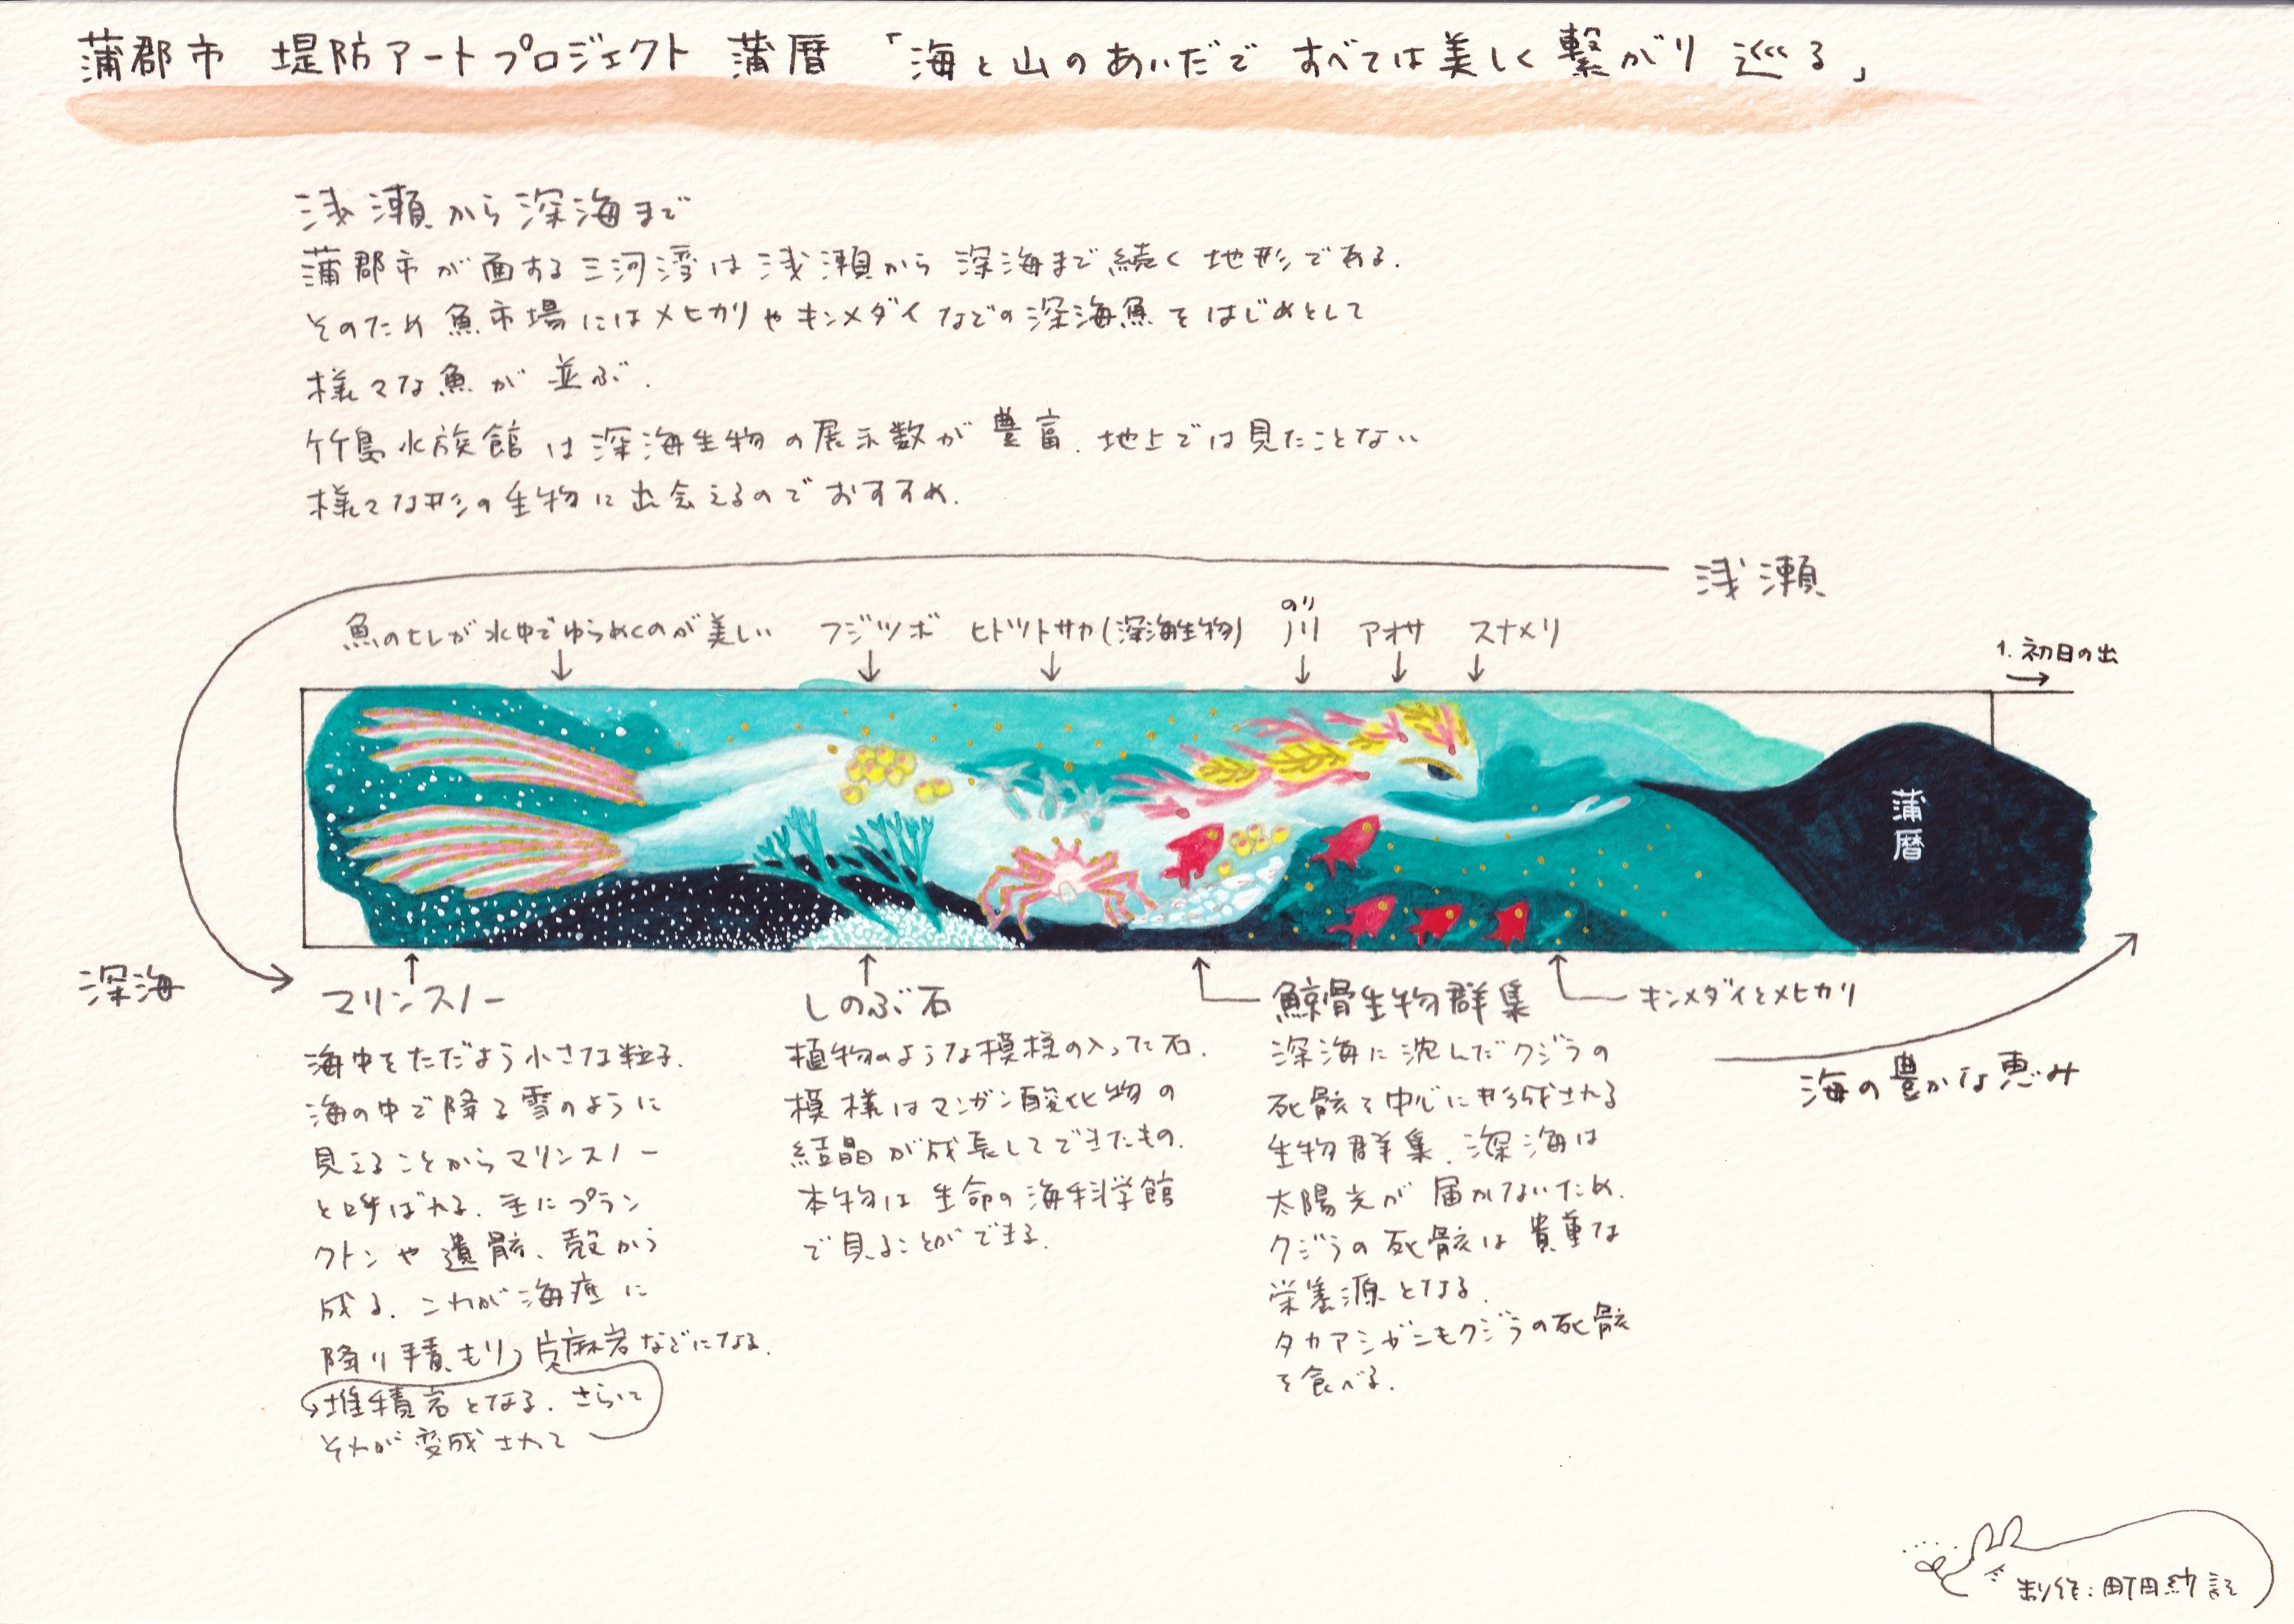 蒲郡市 堤防アートプロジェクト 蒲暦 「海と山のあいだで すべては美しく繋がり 巡る」
浅瀬から深海まで
蒲郡市が面する三河湾は浅瀬から深海まで続く地形である.
そのため魚市場にはメヒカリやキンメダイなどの深海魚をはじめとして
様々な魚が並ぶ.
竹島水族館は深海生物の展示数が豊富.地上では見たことない
様々な形の生物に出会えるのでおすすめ.
浅瀬
魚のヒレが水中でゆらめくのが美しい
フジツボ
ヒトツトサカ(深海生物)
のり
ノリ
アオサ
スナメリ
1.初日の出
蒲暦
深海
マリンスノー
海中をただよう小さな粒子.
海の中で降る雪のように
見えることからマリンスノー
と呼ばれる.主にプラン
クトンや遺骸、殻から
成る.これが海底に
降り積もり、片麻岩などになる.
堆積岩となる.さらに
それが変成されて
しのぶ石
植物のような模様の入った石.
模様はマンガン酸化物の
結晶が成長してできたもの.
本物は生命の海科学館
で見ることができる.
鯨骨生物群集
深海に沈んだクジラの
死骸を中心に形成される
生物群集.深海は
太陽光が届かないため.
クジラの死骸は貴重な
栄養源となる.
タカアシガニもクジラの死骸
を食べる.
キンメダイとメヒカリ
海の豊かな恵み
制作:町田紗記